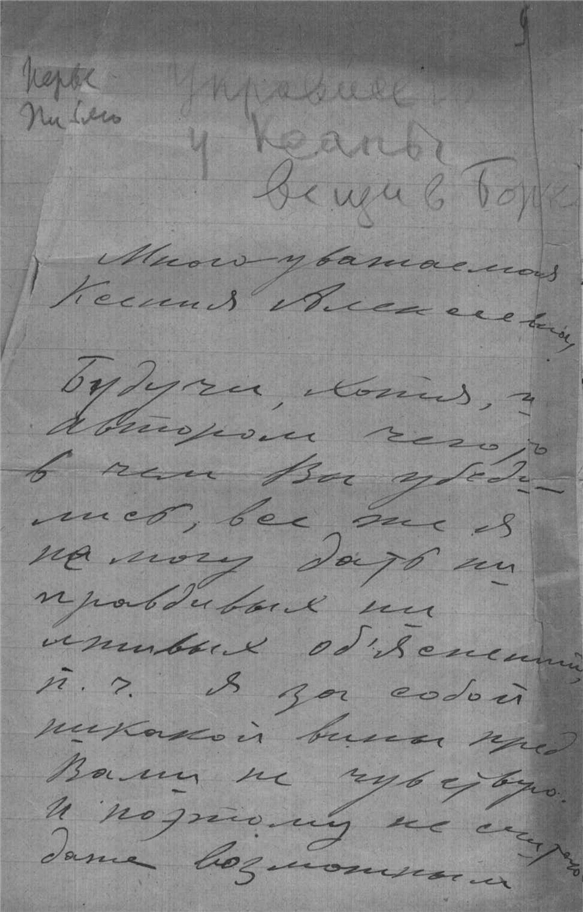 9
Перв.
Письмо
у
вещи в
Многоуважаемая
Ксения Алексеевна,
Будучи, хотя, и
автором чего-то
в чем Вы убеди-
лись, все же я
не могу дать ни
правдивых ни
лживых об'яснений,
п. ч. я за собой
никакой вины пред
Вами не чувствую.
И поэтому не считаю
даже возможным